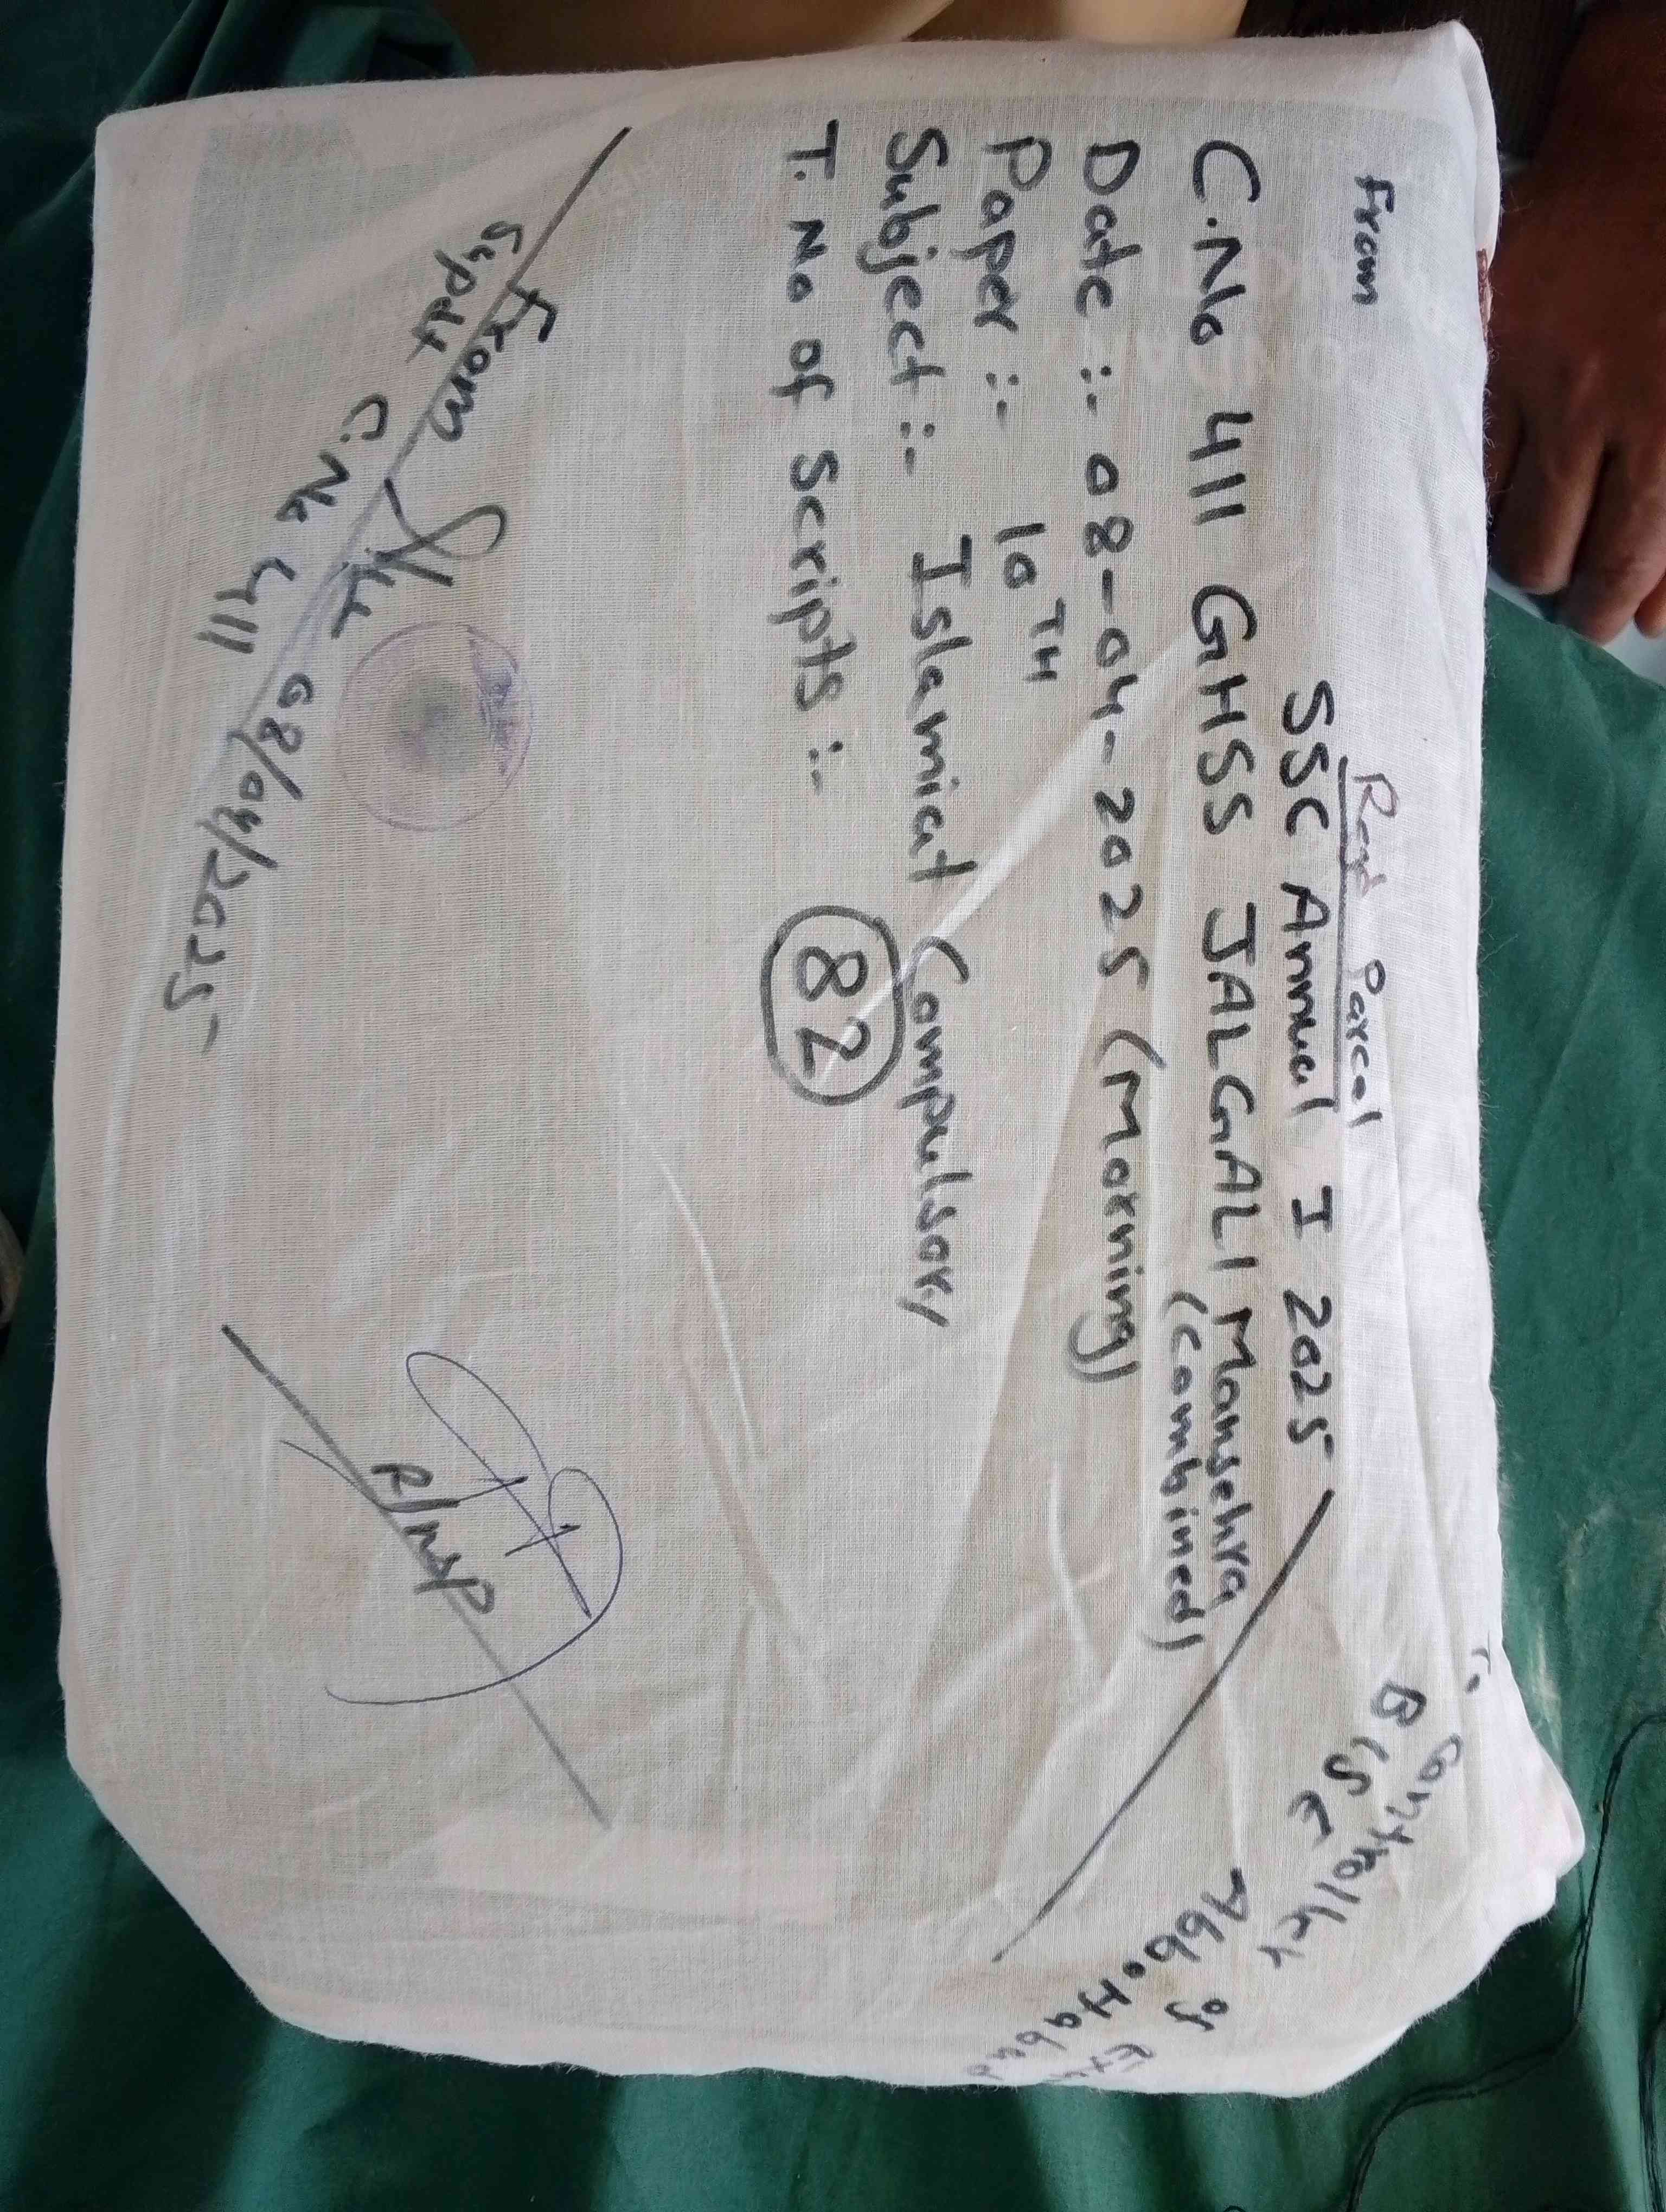 From
Regd Parcel
SSC Annual I 2025
C.No 411 GHSS JALGALI Mansehra
(Combined)
Date :- 08-04-2025 (Morning)
Paper :- 10TH
Subject :- Islamiat Compulsory
T. No of Scripts :- 82
To
Controller of Exa
BISE Abbottabad
From
Supdt
C.No 411
08/04/2025
R/Insp